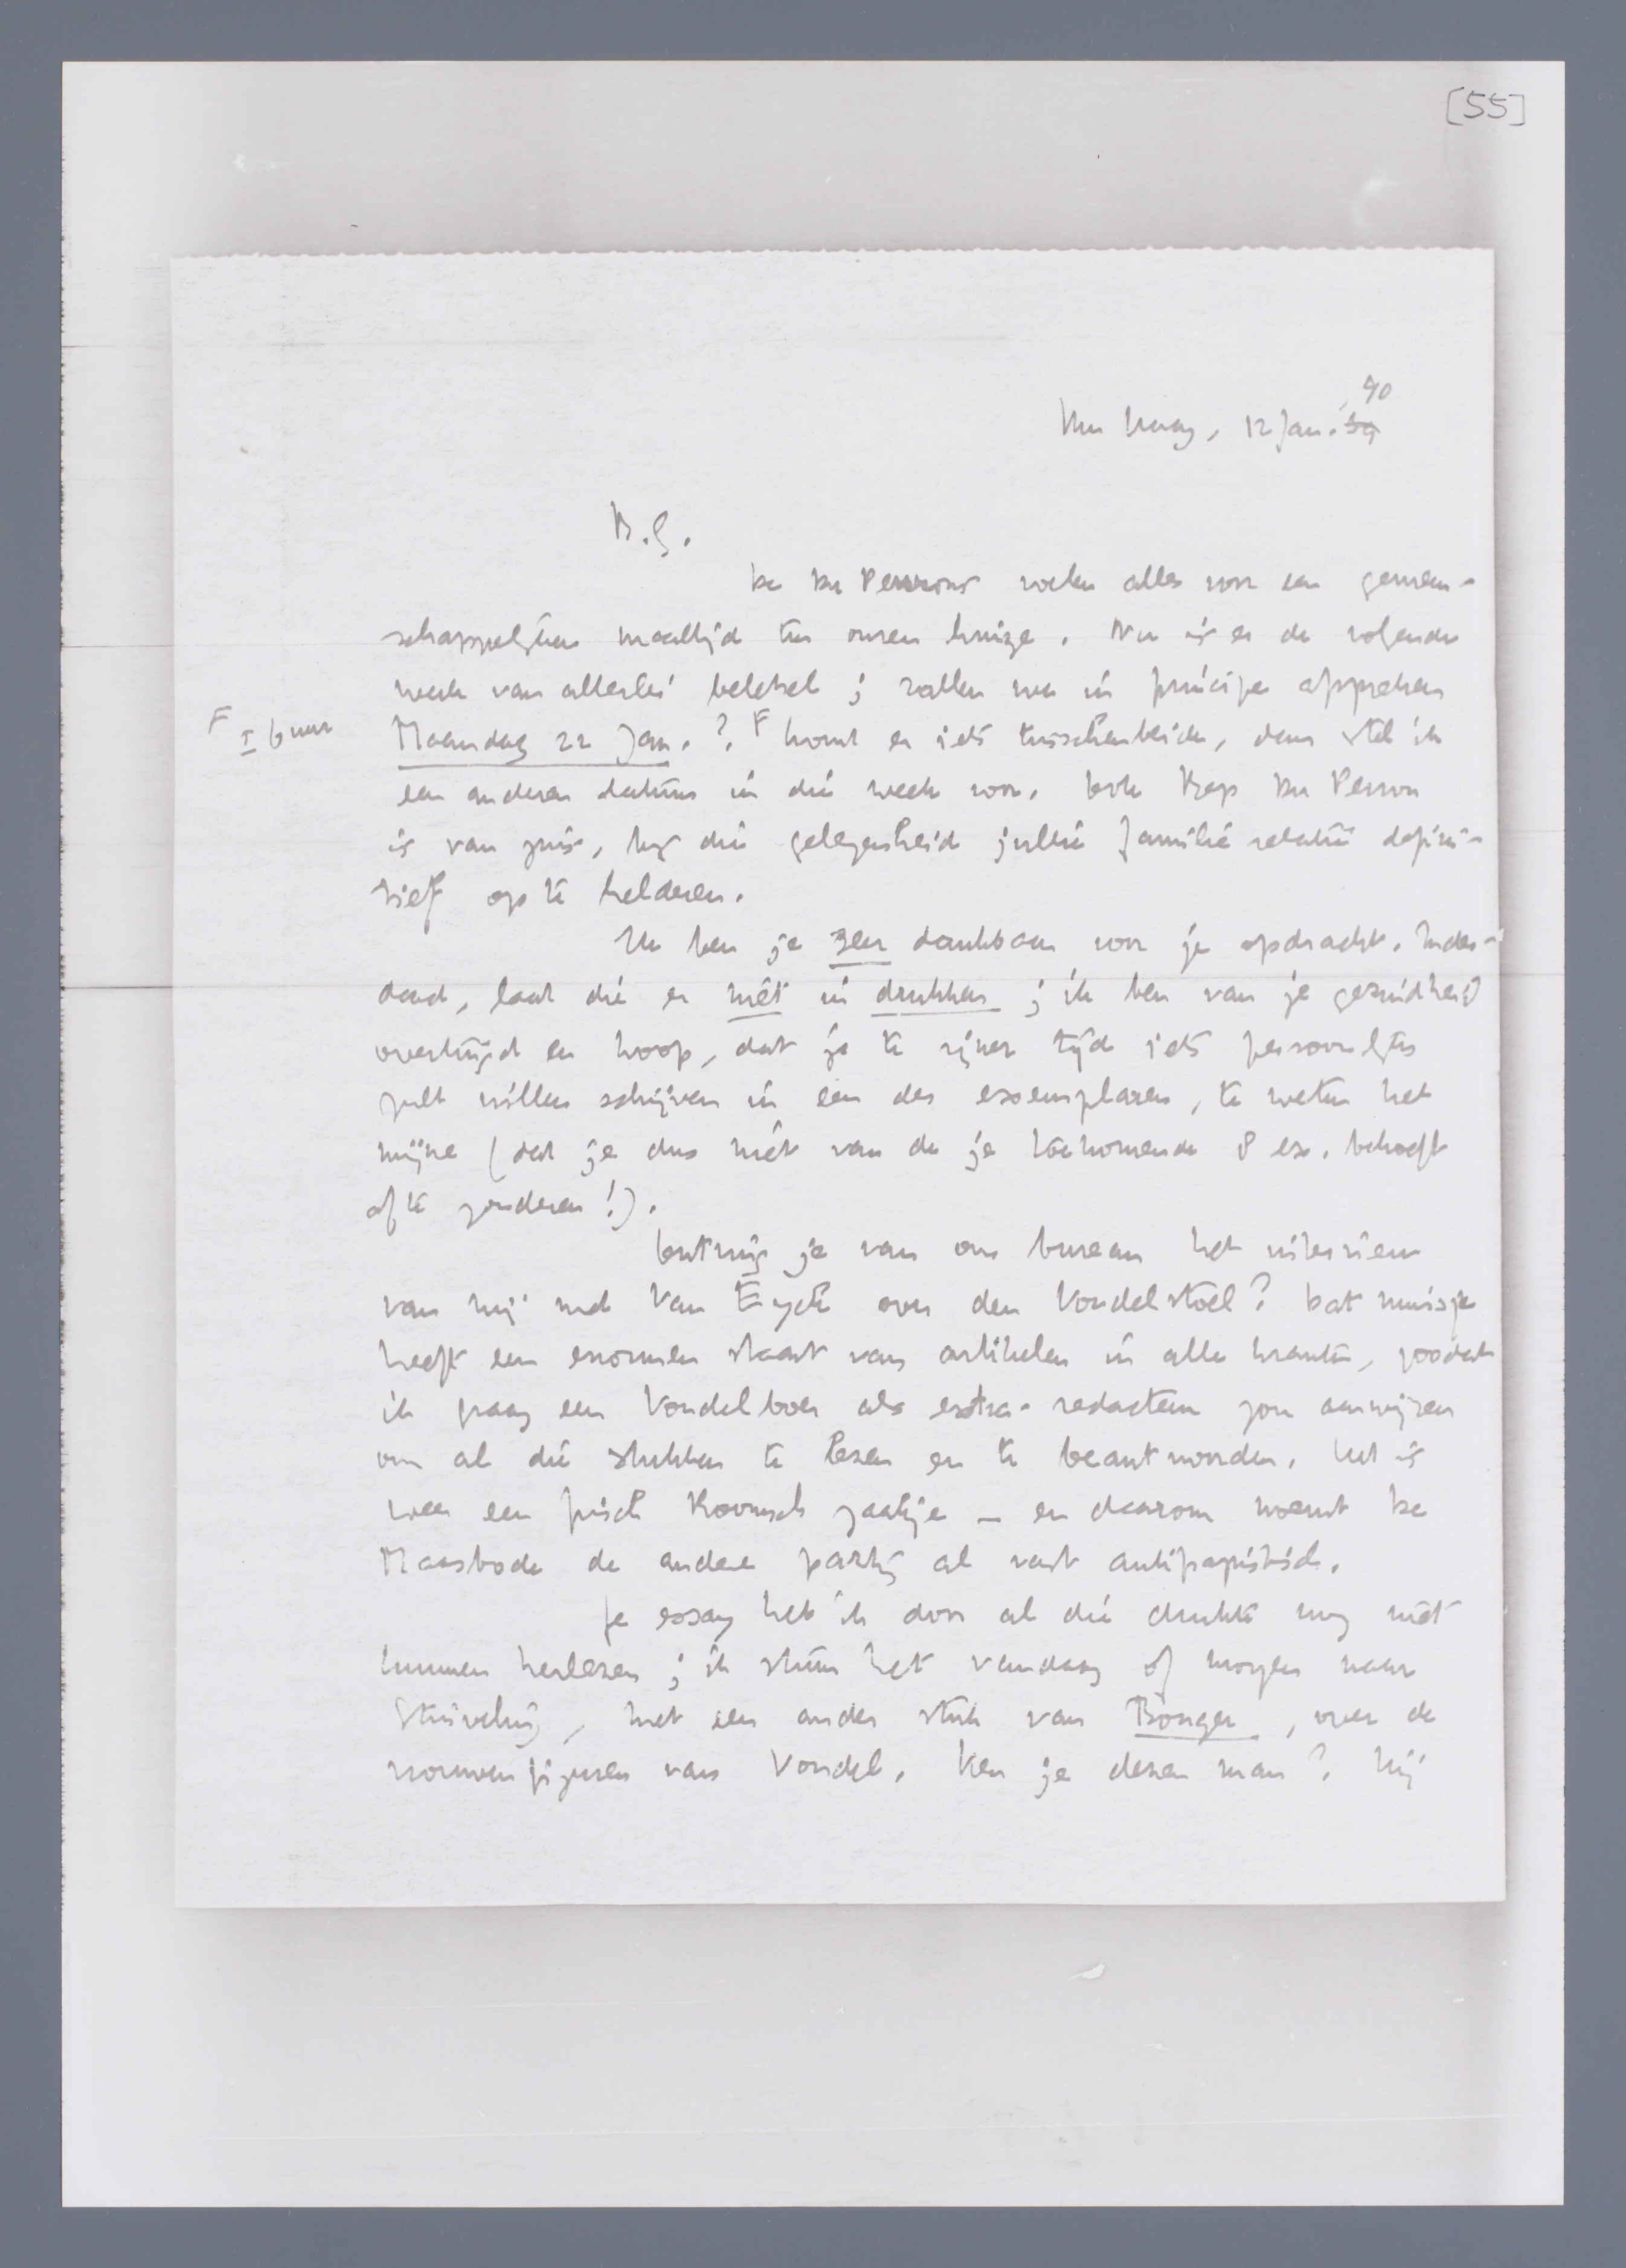 [55]
40
Den Haag, 12 Jan. '39
B.G.
De Du Perrons voelen alles voor een gemeen-
schappelijken maaltijd ten onzen huize. Nu is er de volgende
week van allerlei beletsel; zullen we in principe afspreken
F ± 6 uur
Maandag 22 Jan.? F Komt er iets tusschenbeide, dan stel ik
een anderen datum in die week voor. Ook Bep Du Perron
is van plan, bij die gelegenheid jullie familierelatie defini-
tief op te helderen.
Ik ben je zeer dankbaar voor je opdracht. Inder-
daad, laat die er niet in drukken; ik ben van je gezindheid
overtuigd en hoop, dat je te zijner tijd iets persoonlijks
zult willen schrijven in een der exemplaren, te weten het
mijne (dat je dus niet van de je toekomende 8 ex. behoeft
af te zonderen!).
Ontving je van ons bureau het interview
van mij met Van Eyck over den Vondelstoel? Dat muisje
heeft een enormen staart van artikelen in alle kranten, zoodat
ik graag een Vondelboer als extra-redacteur zou aanwijzen
om al die stukken te lezen en te beantwoorden. Het is
weer een frisch Roomsch zaakje - en daarom noemt De
Maasbode de andere partij al vast antipapistisch.
Je essay heb ik door al die drukte nog niet
kunnen herlezen; ik stuur het vandaag of morgen naar
Stuiveling, met een ander stuk van Bonger, over de
vrouwenfiguren van Vondel. Ken je dezen man? Hij